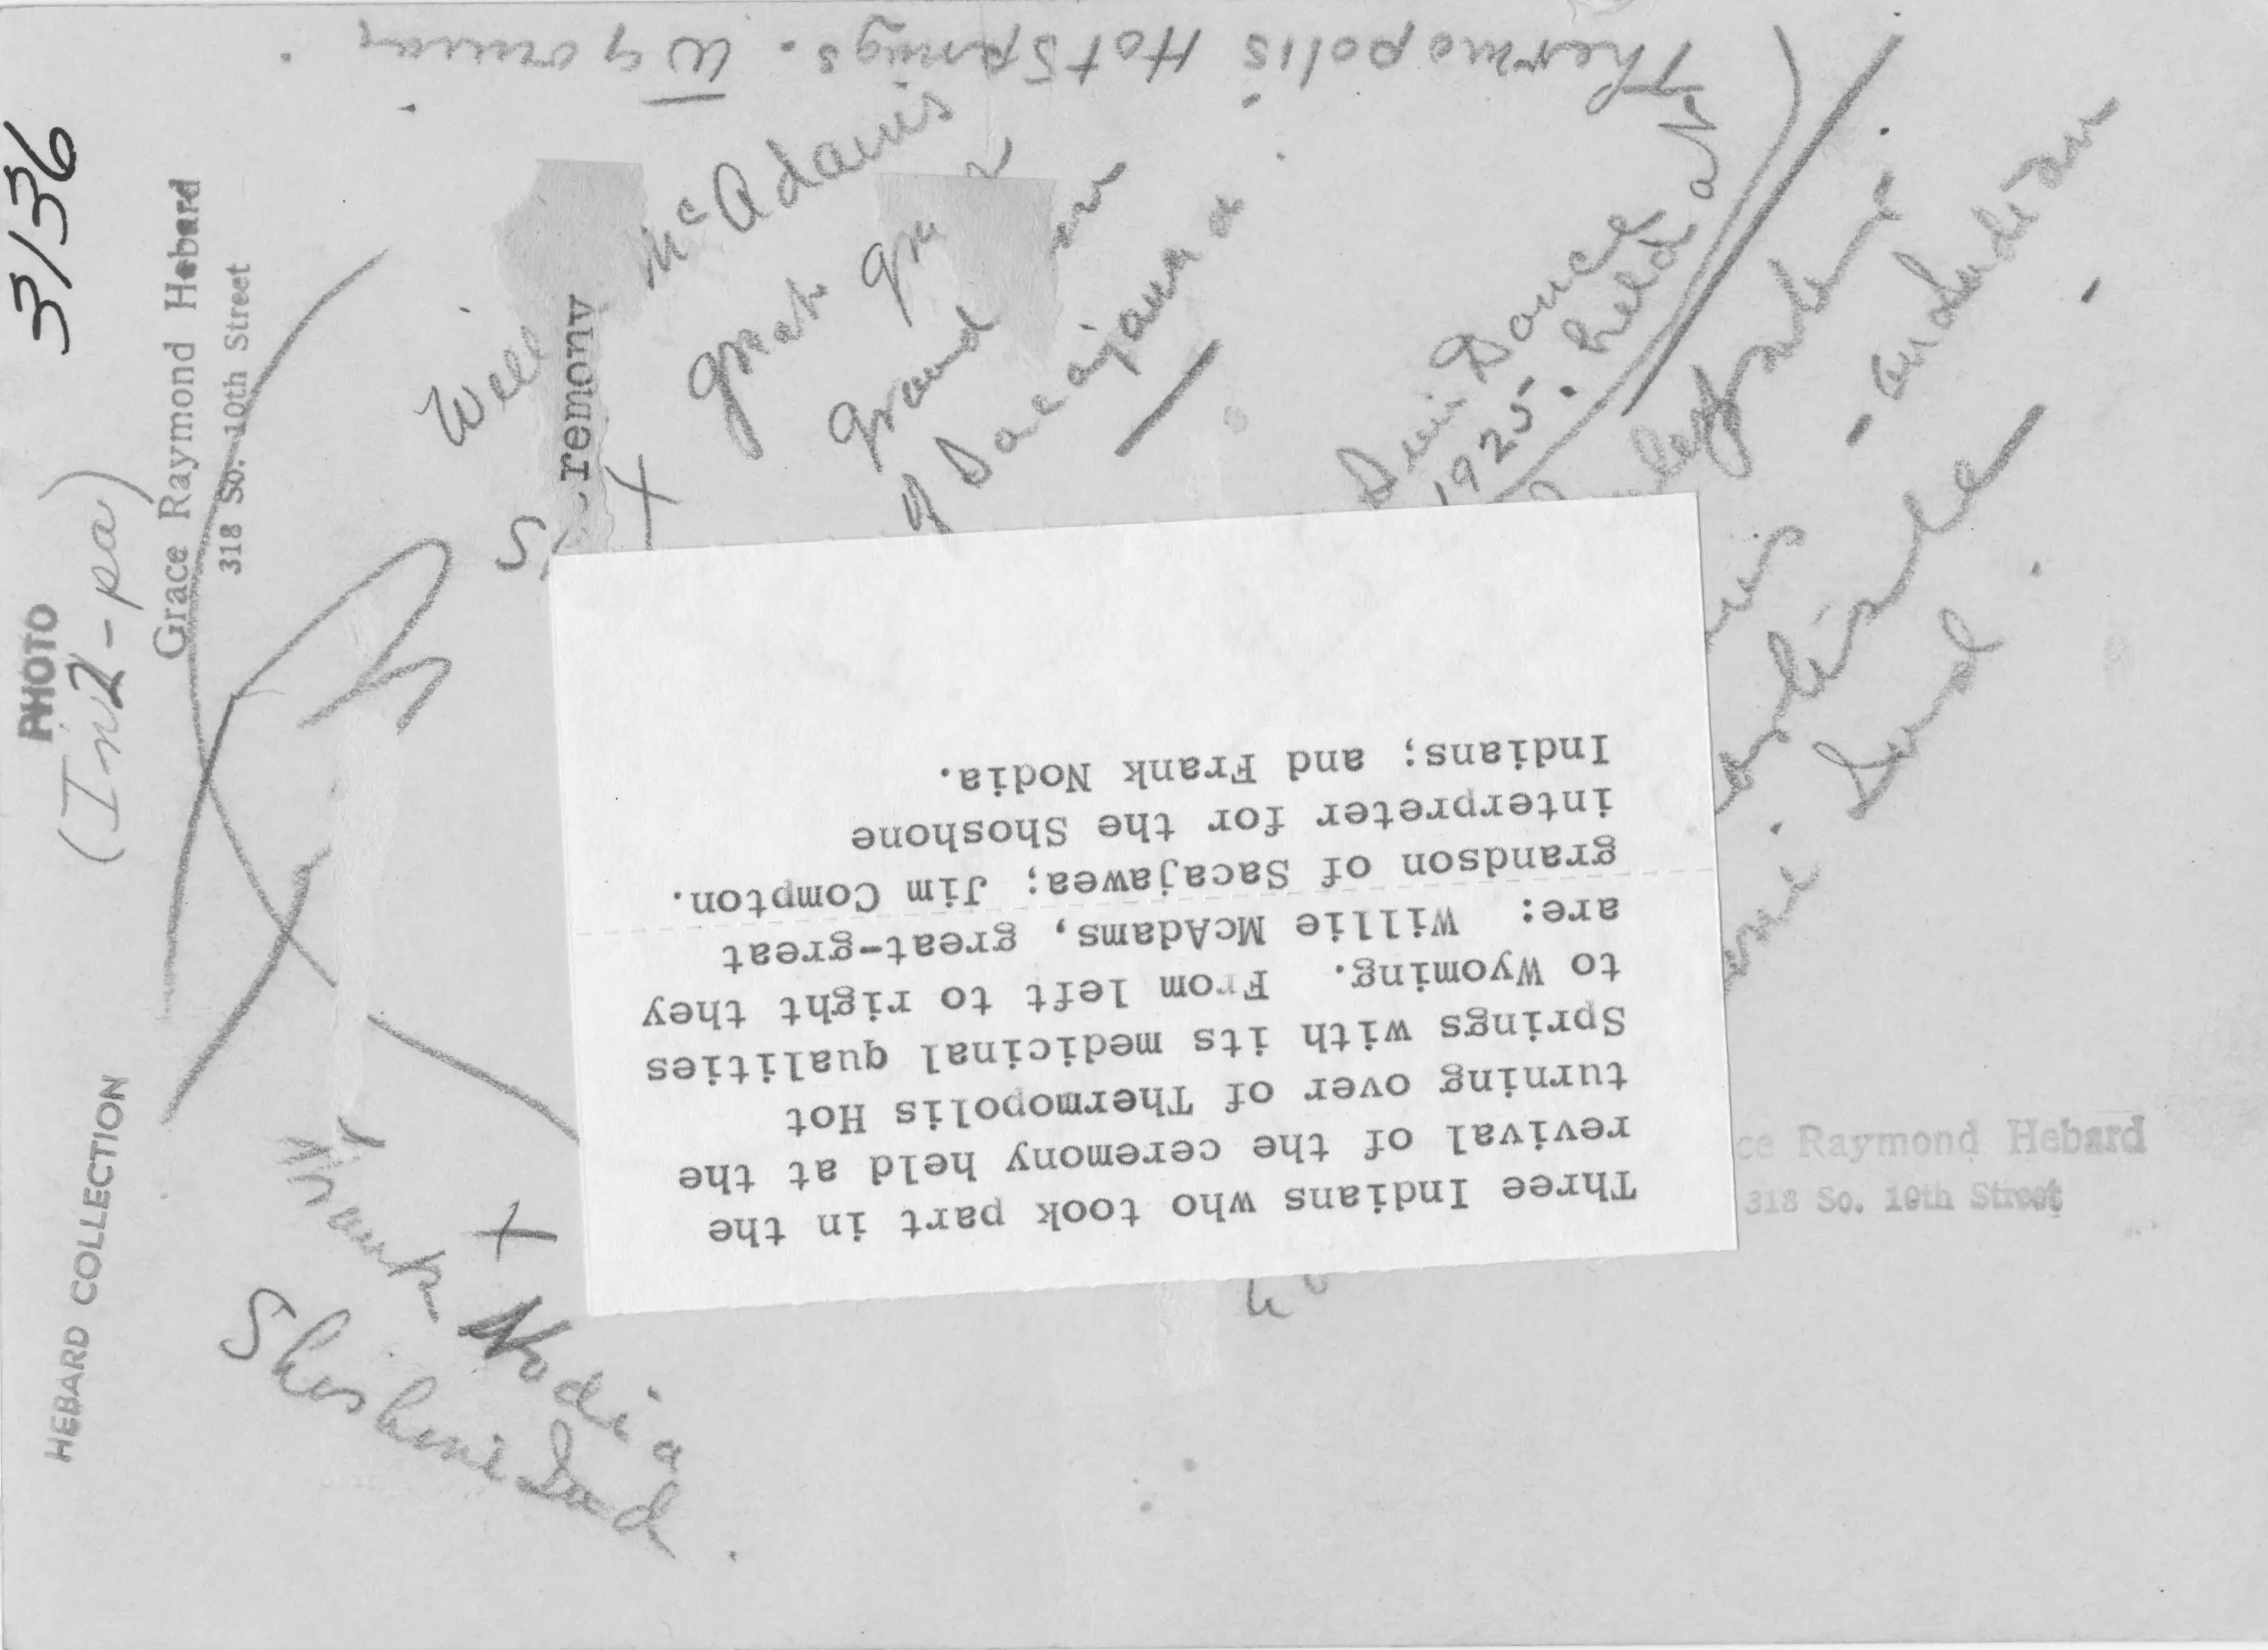 Thermopolis Hot Springs. Wyoming.
3/36
PHOTO
(Ind-pa)
Grace Raymond Hebard
318 So. 10th Street
HEBARD COLLECTION
Will McAdams
great
grand
of Sacajawea
remony
Sun Dance
1925. held at
Three Indians who took part in the
revival of the ceremony held at the
turning over of Thermopolis Hot
Springs with its medicinal qualities
to Wyoming. From left to right they
are: Willie McAdams, great-great
grandson of Sacajawea; Jim Compton.
interpreter for the Shoshone
Indians; and Frank Nodia.
Frank Nodia
Shoshoni Ind.
ce Raymond Hebard
318 So. 10th Street